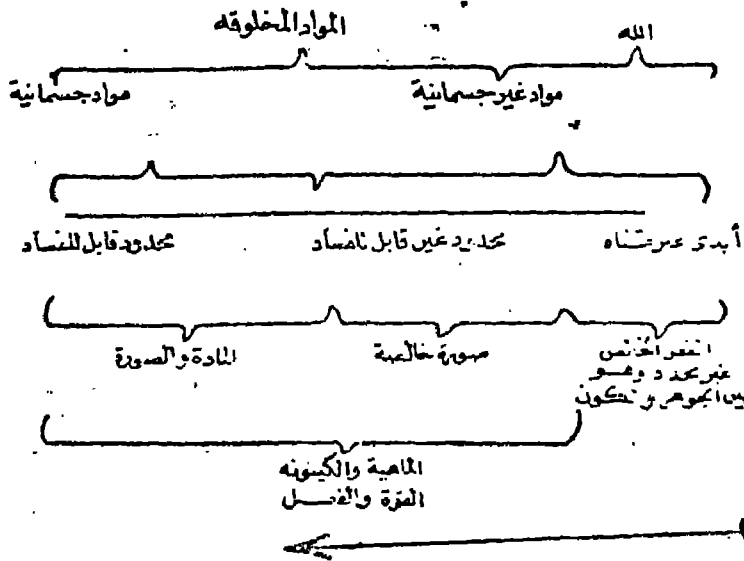 الله
المواد المخلوقه
مواد غير جسمانية
مواد جسمانية
أبدى غير متناه
محدود غير قابل للفساد
محدود قابل للفساد
الخالص
غير محدد وهو
بين الجوهر و
صورة خالصة
المادة والصورة
الماهية والكينونه
القوة والفعل